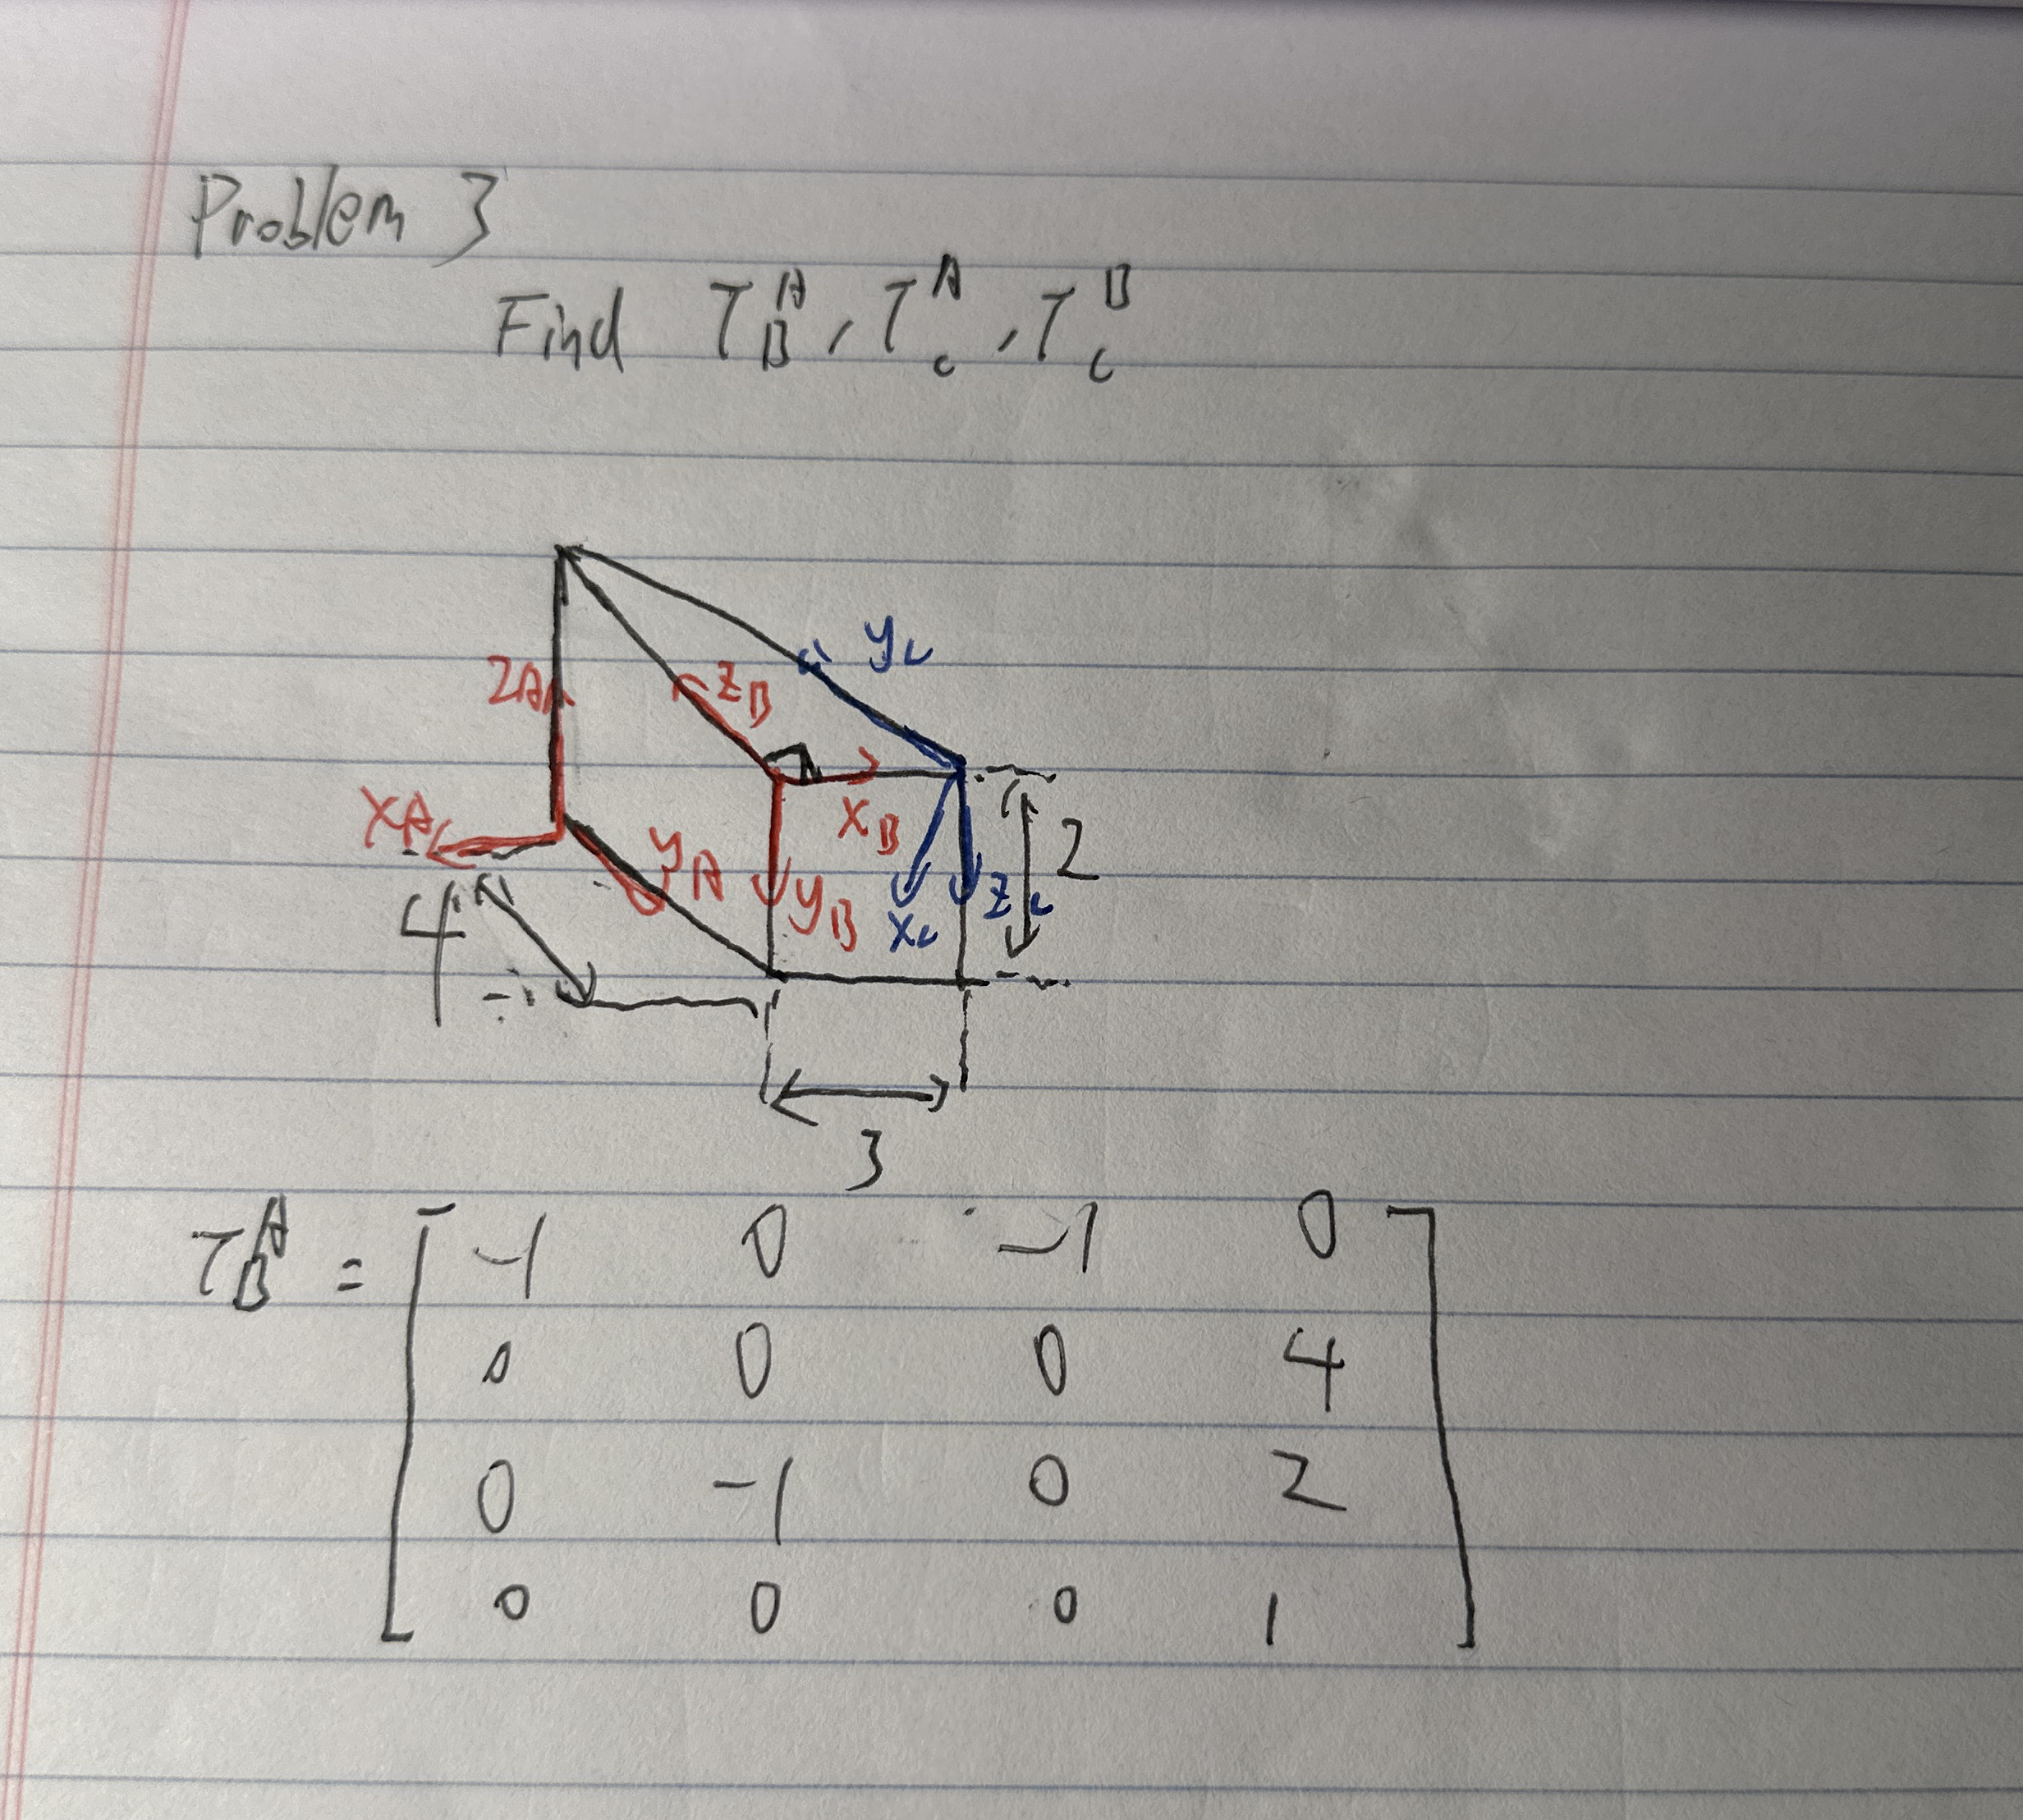 Problem 3
Find T_B^A, T_C^A, T_C^B
y_C
z_A z_B
x_A y_A x_B 2
4 y_B x_C z_C
3
T_B^A = [ -1 0 -1 0
0 0 0 4
0 -1 0 2
0 0 0 1 ]